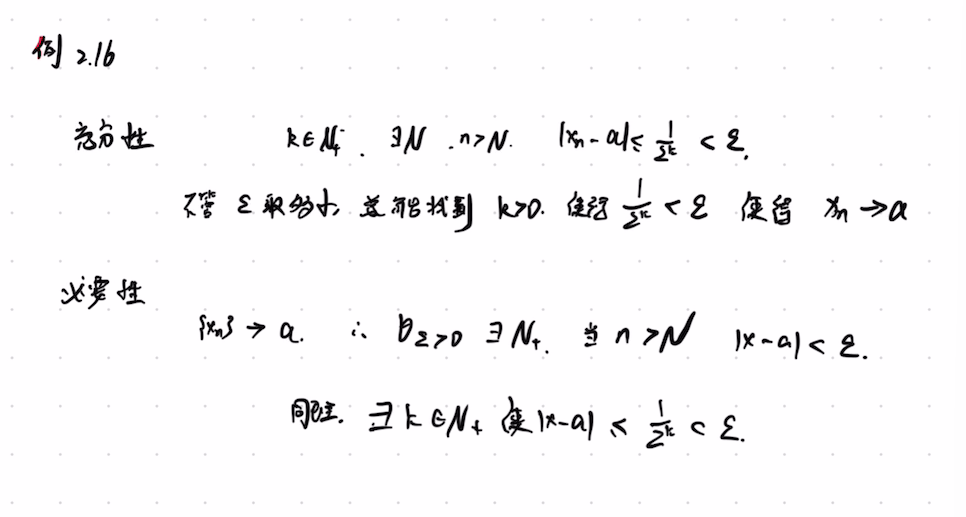 例 2.16
充分性 k∈N₊. ∃N. n>N. |xₙ-a|≤ 1/2ᵏ < ε.
不管 ε 取多小 总能找到 k>0. 使得 1/2ᵏ < ε 使得 xₙ→a
必要性
{xₙ}→a. ∴ ∀ε>0 ∃N₊. 当 n>N |x-a|<ε.
同理. ∃k∈N₊ 使|x-a| ≤ 1/2ᵏ < ε.